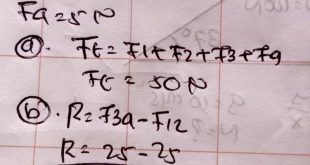 F4=5N
(a). Ft=F1+F2+F3+F4
Ft=50N
(b). R=F34-F12
R=25-25